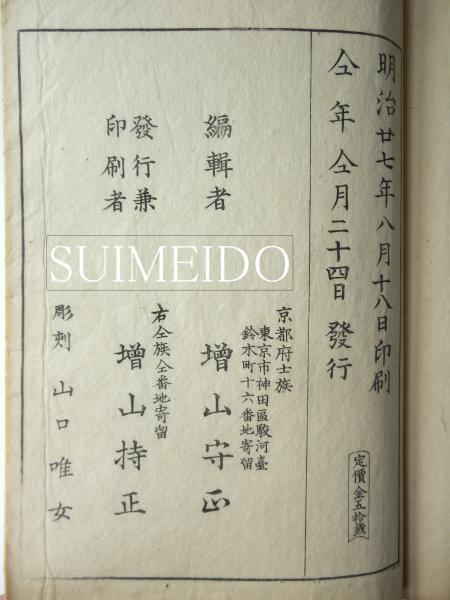 明治廿七年八月十八日印刷
仝年仝月二十四日發行
定價金五拾錢
京都府士族
東京市神田區駿河臺
鈴木町十六番地寄留
編輯者 增山守正
右仝族仝番地寄留
發行兼
印刷者 增山持正
彫刻 山口唯女
SUIMEIDO